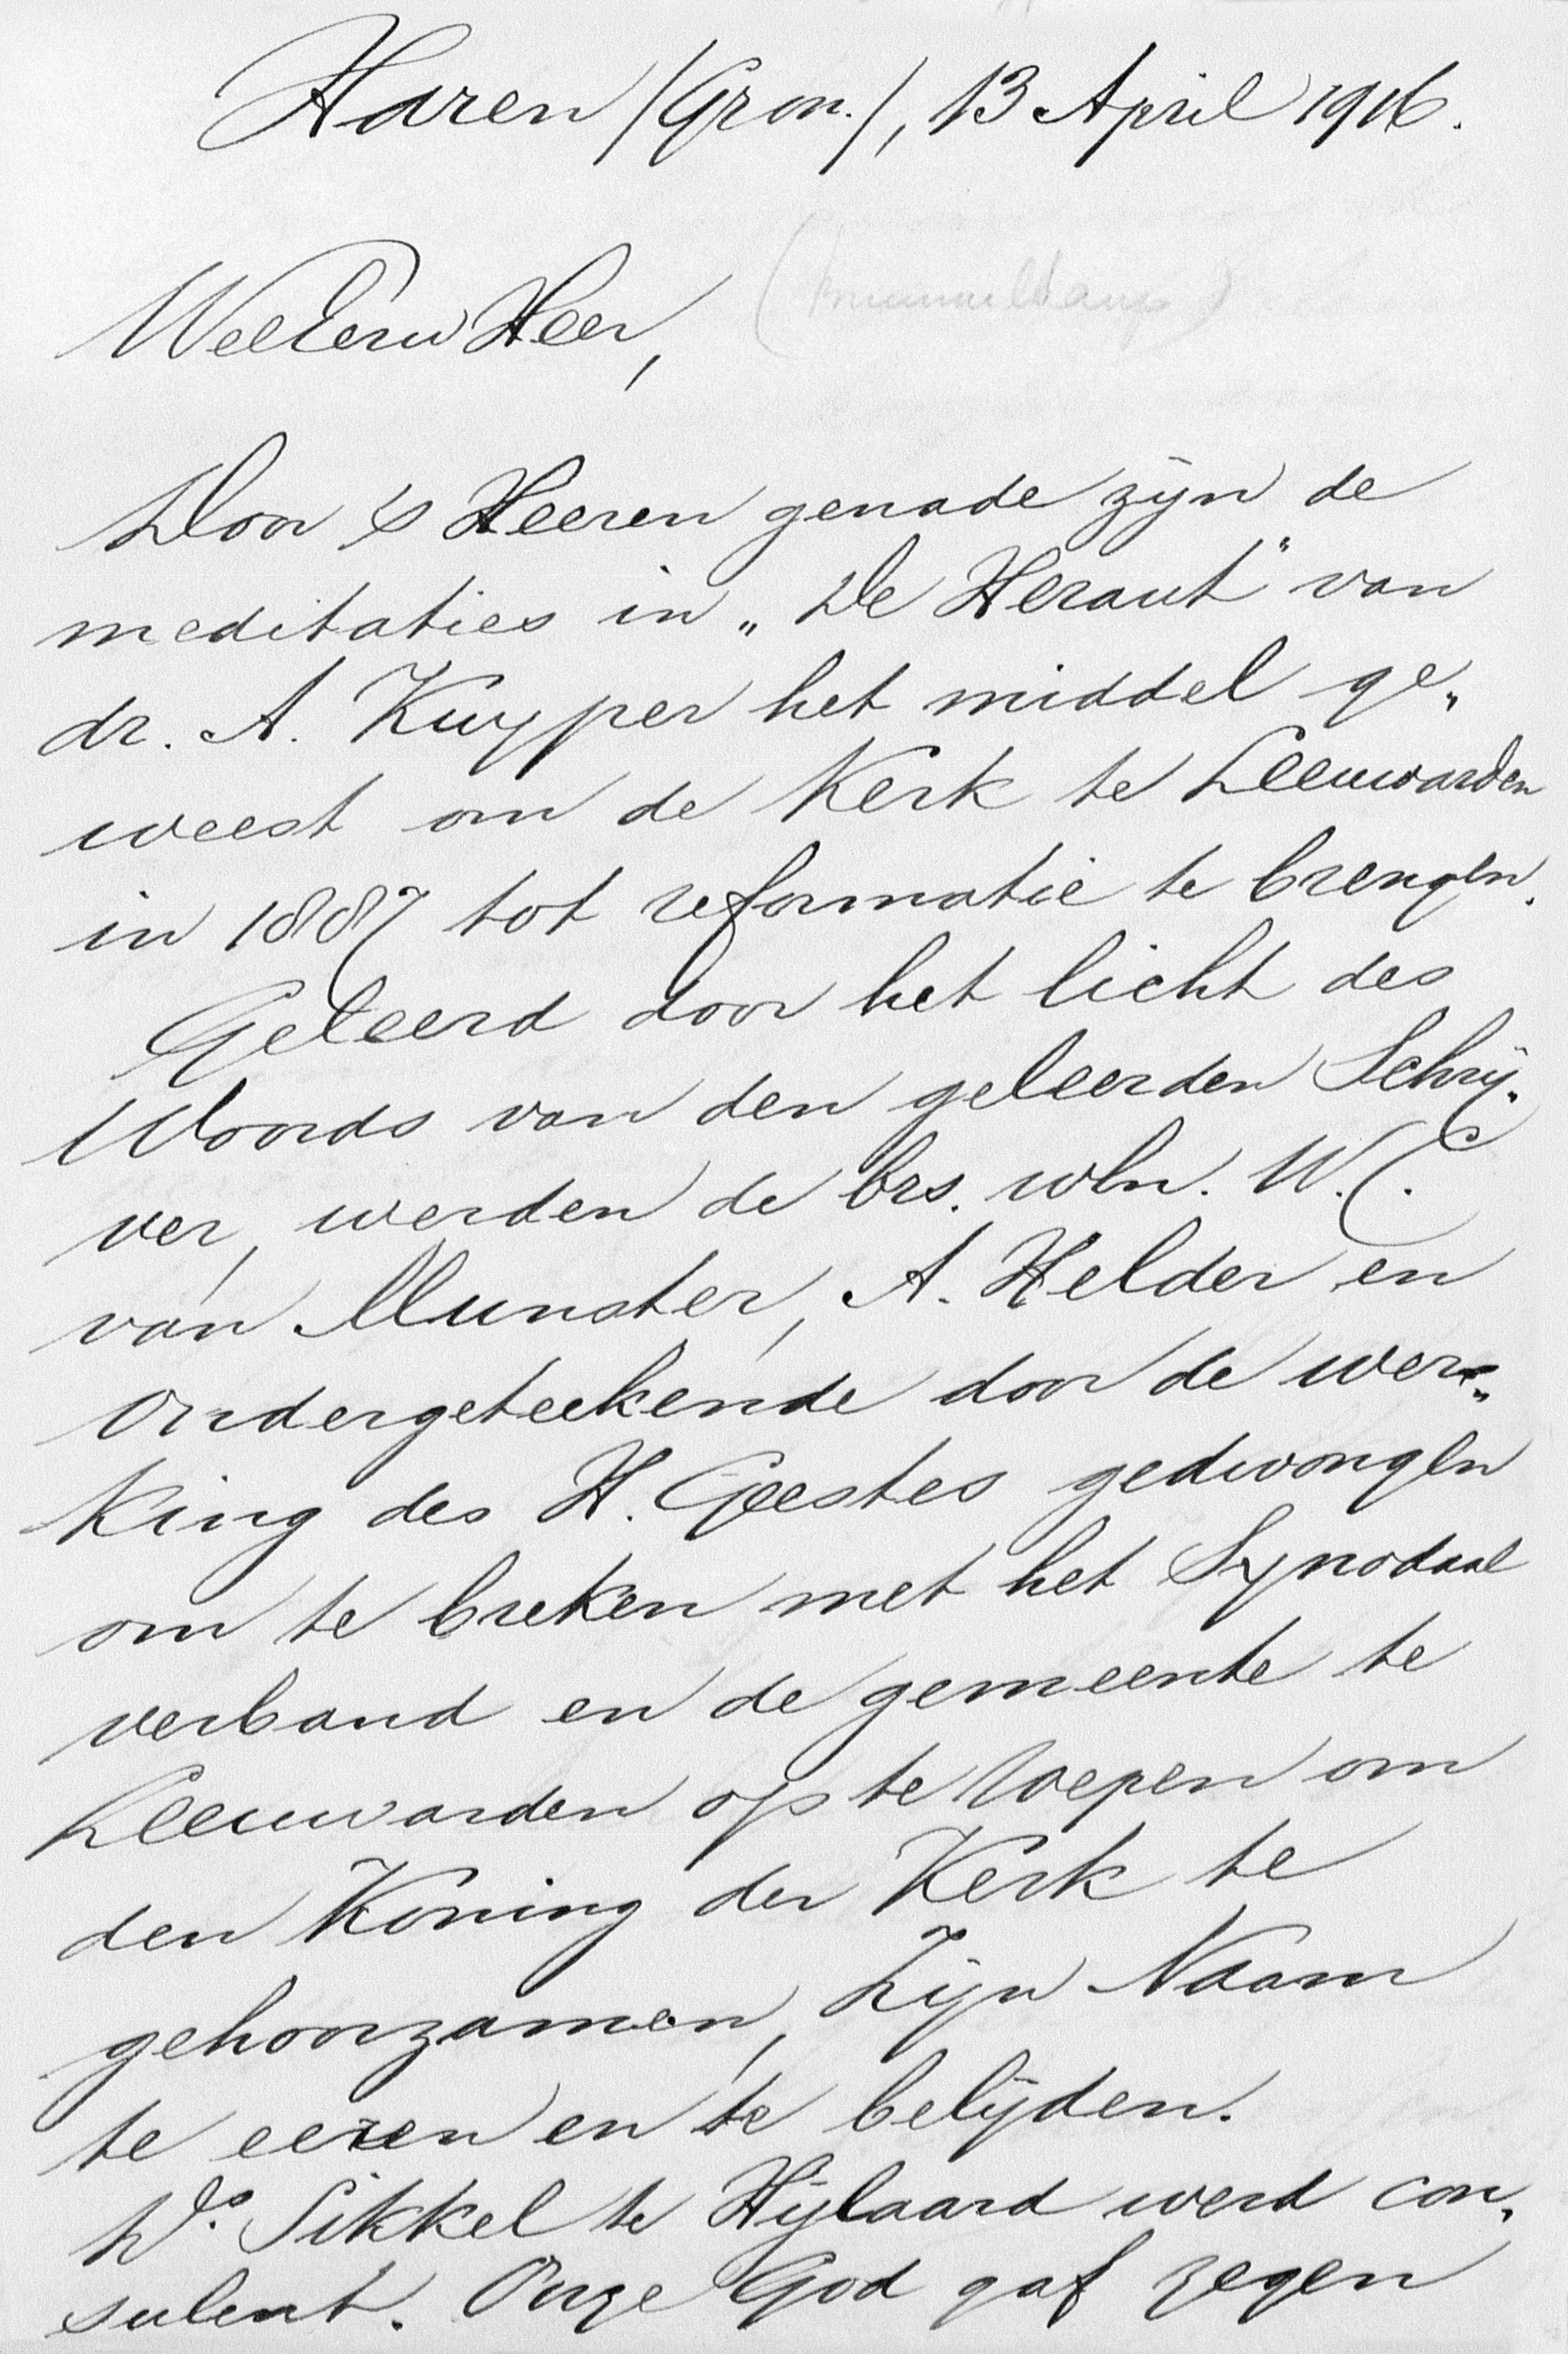 Haren /Gron./, 13 April 1916.
WelEerw Heer,
Door 's Heeren genade zijn de
meditaties in „De Heraut" van
dr. A. Kuyper het middel ge„
weest om de Kerk te Leeuwarden
in 1887 tot reformatie te brengen.
Geleerd door het licht des
Woords van den geleerden Schrij„
ver, werden de brs. wln. W.C.
van Munster, A. Helder en
ondergeteekende door de wer„
king des H. Geestes gedwongen
om te breken met het Synodaal
verband en de gemeente te
Leeuwarden op te roepen om
den Koning der Kerk te
gehoorzamen, Zijn Naam
te eeren en te belijden.
Ds. Sikkel te Hijlaard werd con„
sulent. Onze God gaf zegen